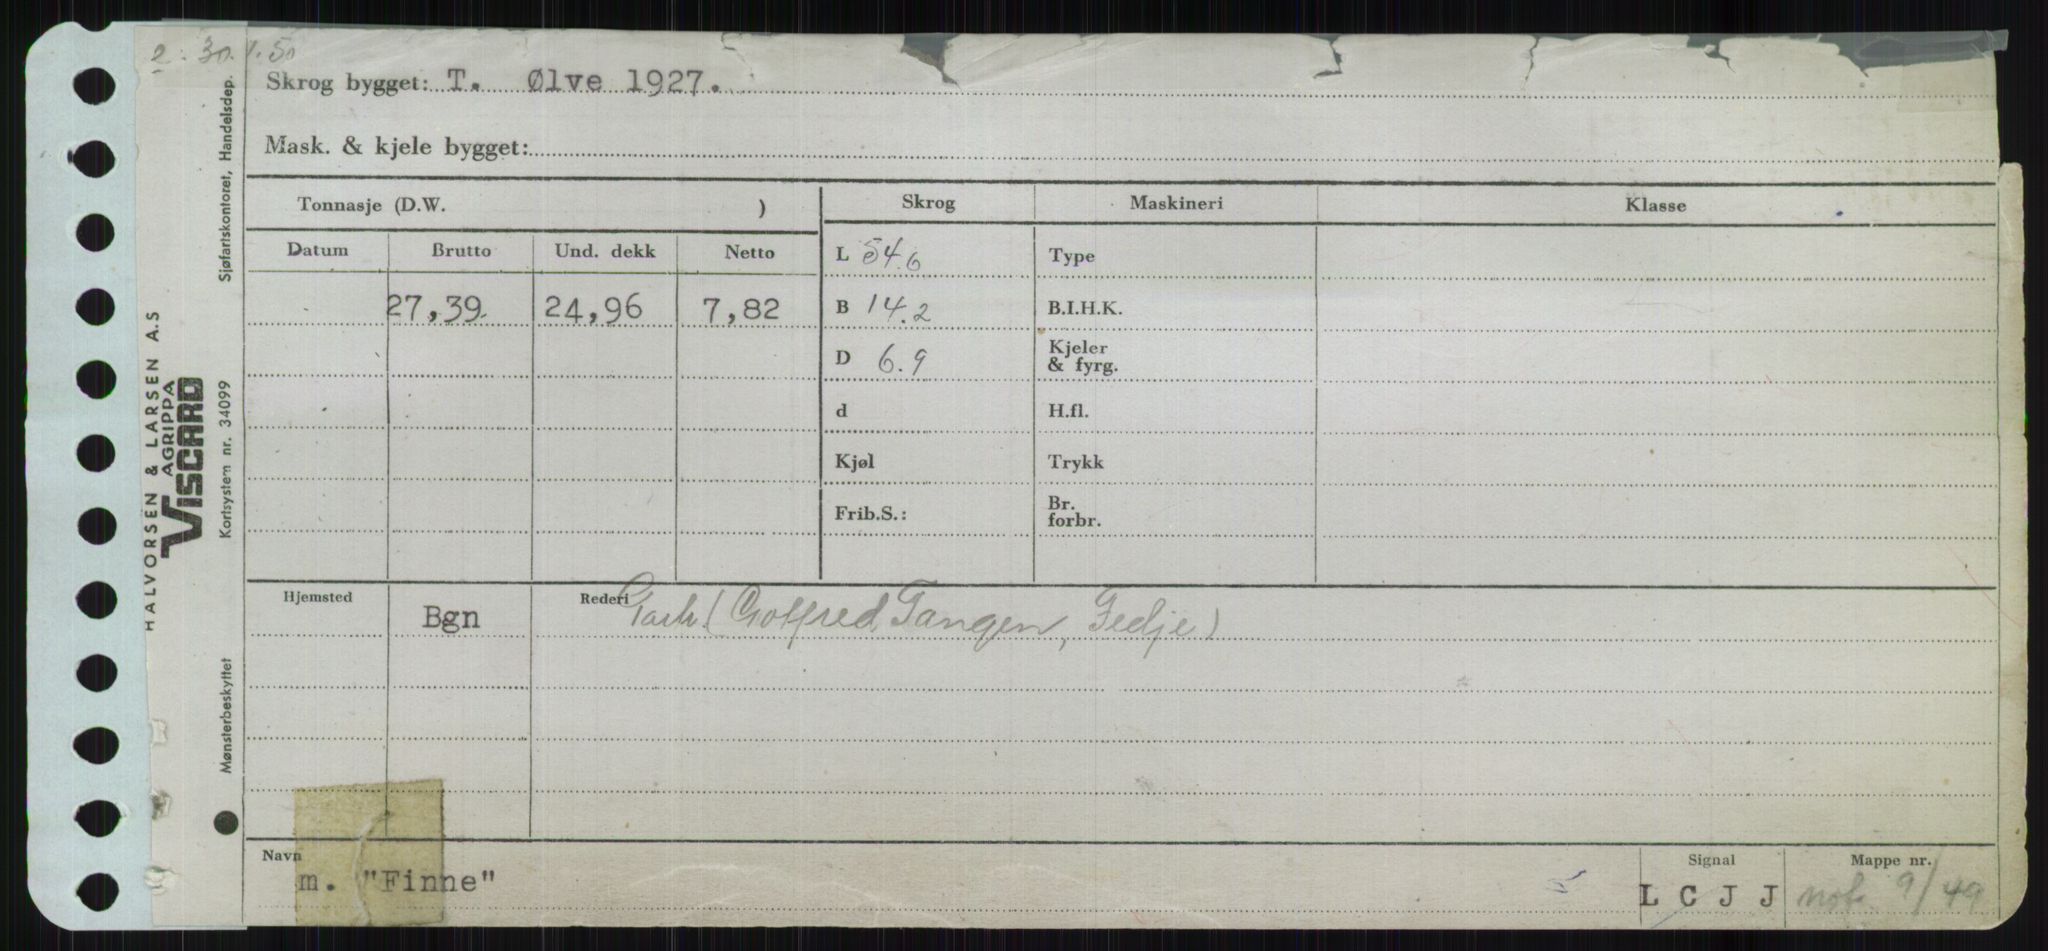 2. 30.1.50
Skrog bygget: T. Ølve 1927.
Mask. & kjele bygget:
Tonnasje (D.W. )
Skrog
Maskineri
Klasse
Datum
Brutto
Und. dekk
Netto
27,39
24,96
7,82
L 54.6
B 14.2
D 6.9
d
Kjøl
Frib.S.:
Type
B.I.H.K.
Kjeler
& fyrg.
H.fl.
Trykk
Br.
forbr.
Hjemsted
Bgn
Rederi
(Gotfred Tangen, Fedje)
Navn
m. "Finne"
Signal
L C J J
Mappe nr.
not. 9/49
HALVORSEN & LARSEN A.S
AGRIPPA
VISCARD
Kortsystem nr. 34099
Sjøfartskontoret, Handelsdep.
Mønsterbeskyttet